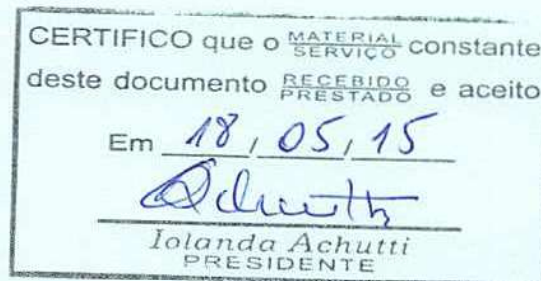 CERTIFICO que o MATERIAL SERVIÇO constante
deste documento RECEBIDO PRESTADO e aceito
Em 18, 05, 15
Achutti
Iolanda Achutti
PRESIDENTE